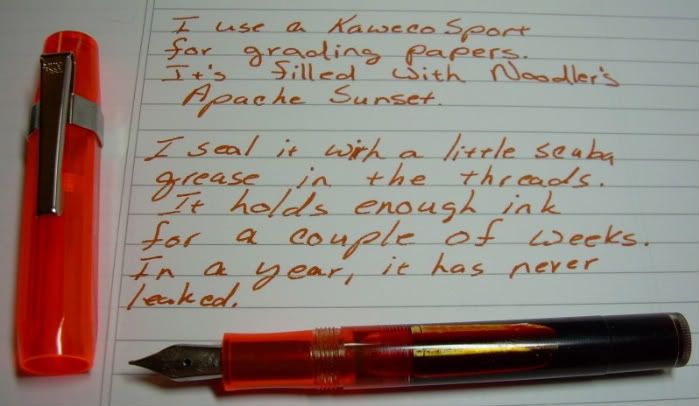 I use a Kaweco Sport
for grading papers.
It's filled with Noodler's
Apache Sunset.
I seal it with a little scuba
grease in the threads.
It holds enough ink
for a couple of weeks.
In a year, it has never
leaked.